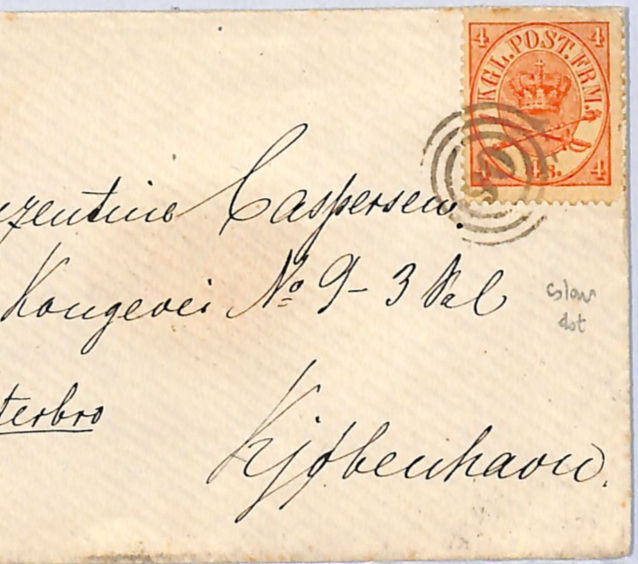 4 KGL. POST. FRM. 4
4 4 S. 4
Caspersen.
Kongevei No 9 - 3 Sal
colour
dot
terbro
Kjøbenhavn.